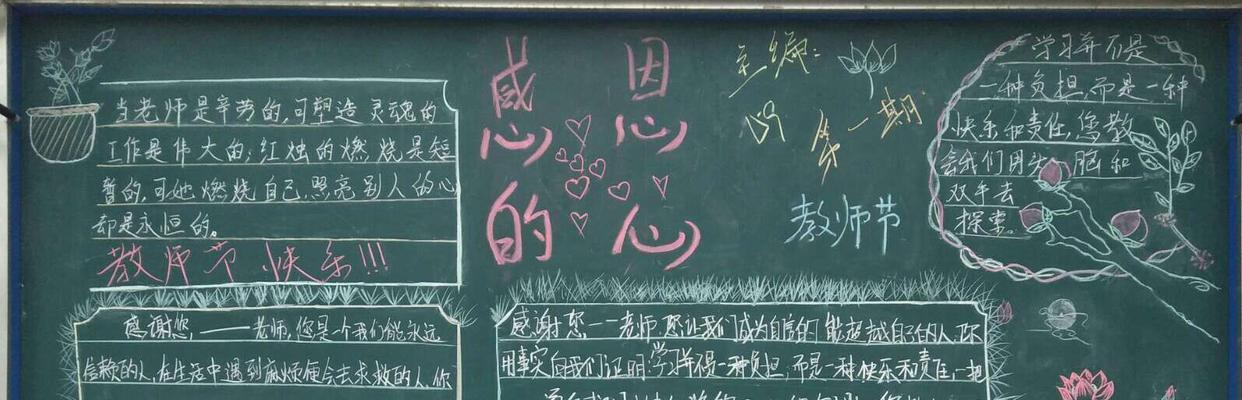 当老师是辛劳的,可塑造灵魂的
工作是伟大的;红烛的燃烧是短
暂的,可她燃烧自己,照亮别人的心
却是永恒的。
教师节快乐!!!
感谢您,——老师,您是一个我们能永远
信赖的人,在生活中遇到麻烦便会去求救的人,你
感恩
的心
主编:
第一期
教师节
学习并不是
一种负担,而是一种
快乐和责任,
会我们用头脑和
双手去
探索。
感谢您——老师,您让我们成为自信的,能超越自己的人,你
用事实向我们证明:学习并不是一种负担,而是一种快乐和责任,一把